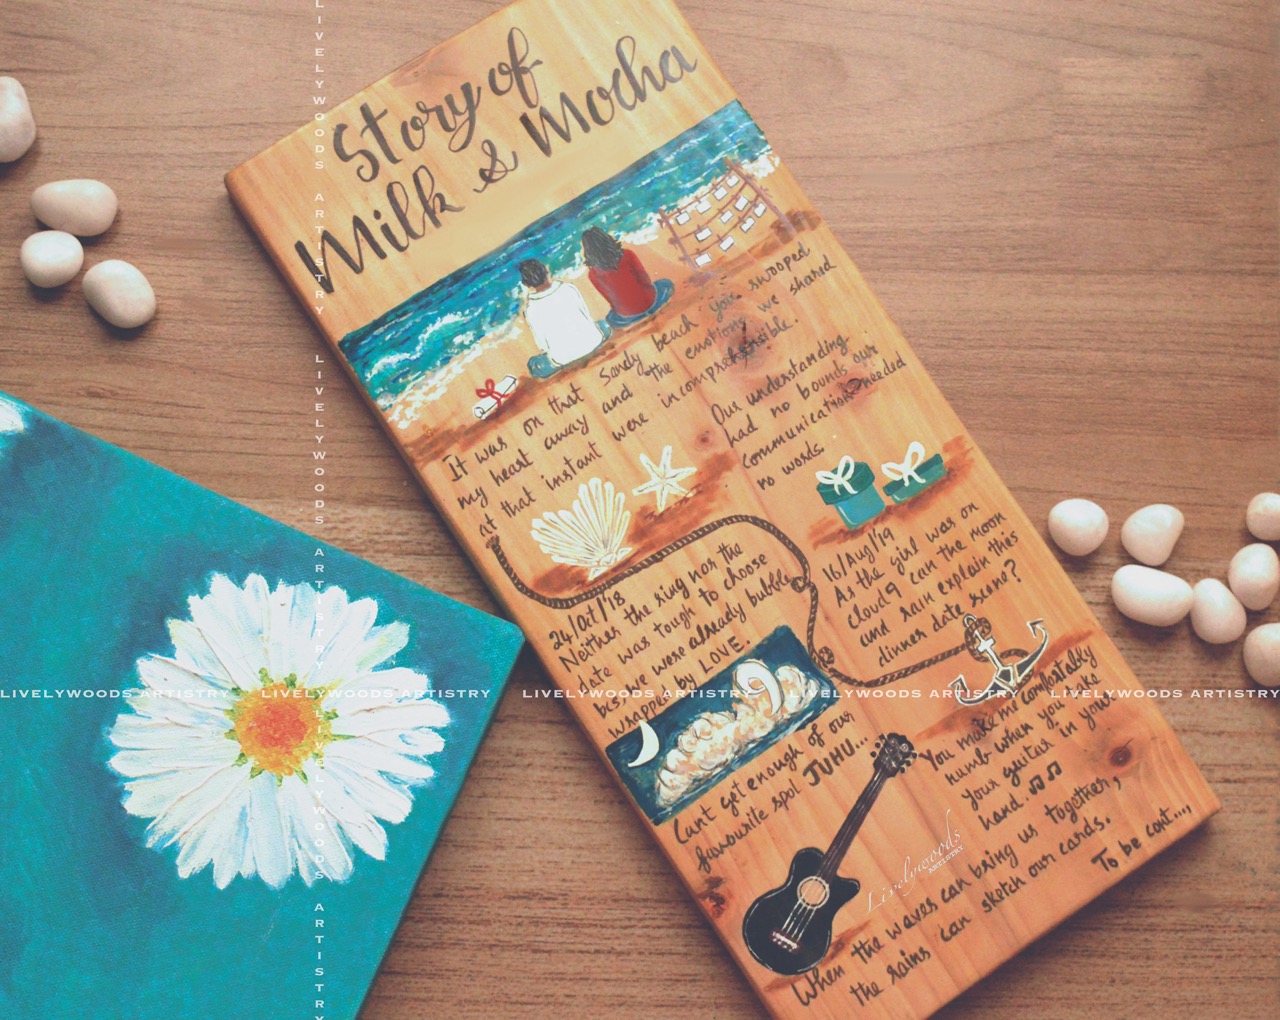 Story of
Milk & Mocha
It was on that sandy beach you swooped
my heart away and the emotions we shared
at that instant were incomprehensible.
Our understanding
had no bounds our
communication needed
no words.
24/Oct/'18
Neither the ring nor the
date was tough to choose
bcs, we were already bubble
wrapped by LOVE.
16/Aug/'19
As the girl was on
cloud 9 can the moon
and rain explain this
dinner date more?
Can't get enough of our
favourite spot JUHU...
You make me comfortably
numb when you make
your guitar in your
hand.
When the waves can bring us together,
the rains can sketch our cards.
To be cont....
Livelywoods
ARTISTRY
LIVELYWOODS ARTISTRY LIVELYWOODS ARTISTRY LIVELYWOODS ARTISTRY LIVELYWOODS ARTISTRY LIVELYWOODS ARTISTRY
LIVELYWOODS ARTISTRY LIVELYWOODS ARTISTRY LIVELYWOODS ARTISTRY